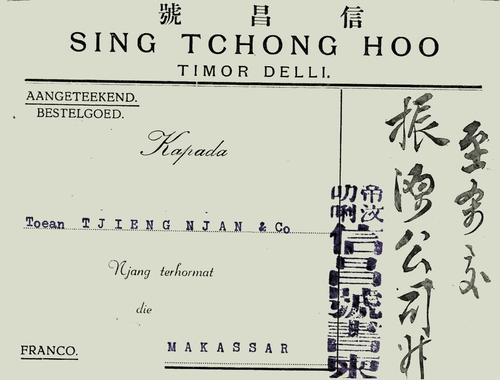 號昌信
SING TCHONG HOO
TIMOR DELLI.
AANGETEEKEND.
BESTELGOED.
Kapada
Toean TJIENG NJAN & Co
Njang terhormat
die
MAKASSAR
FRANCO.
帝汶
叻唎
信昌號
振源公司